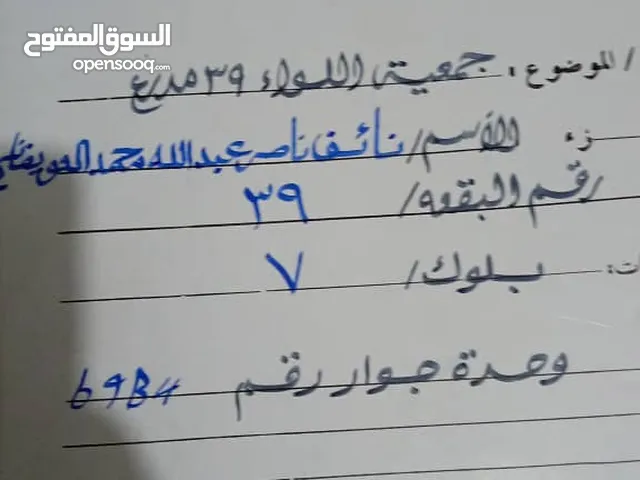 السوق المفتوح
opensooq.com
/ الموضوع: جمعية اللواء ٣٩ مدرع
زء الاسم/ نائف ناصر عبدالله محمد
رقم البقعه/ ٣٩
ات: بلوك/ ٧
وحدة جوار رقم 69B4